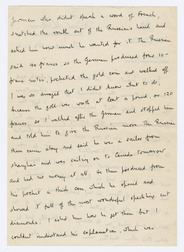 German who didn't speak a word of French,
snatched the cloth out of the Russian's hand and
asked him how much he wanted for it. The Russian
said 40 francs so the German produced four 10-
franc notes, pocketed the gold coin and walked off
I was so amazed that I didn't know what to do,
because the gold was worth at least a pound, or 120
francs, so I walked after the German and stopped him
and told him to give the Russian more. The Russian
then came along and said he was a sailor from
Shanghai and was sailing on to Canada tomorrow
and had no money at all. He then produced from
his pocket a thick coin which he opened and
showed it full of the most wonderful sparkling cut
diamonds. I asked him how he got them but I
couldn't understand his explanation, which was